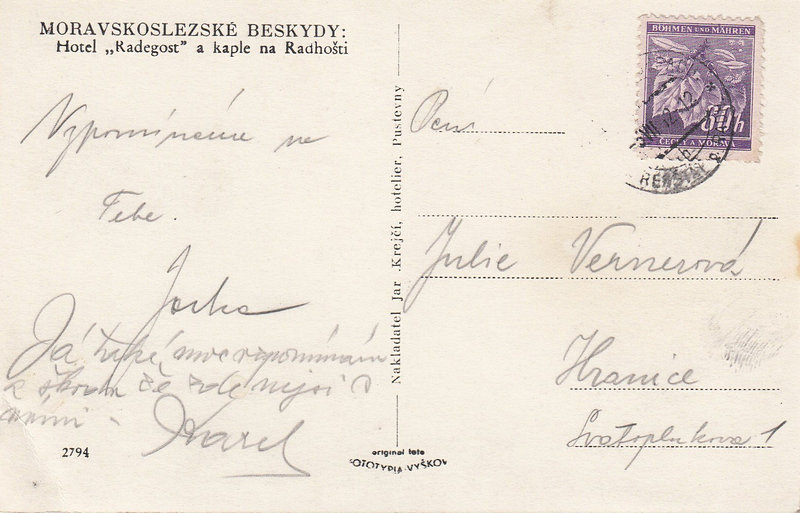 MORAVSKOSLEZSKÉ BESKYDY:
Hotel „Radegost" a kaple na Radhošti
Vzpomínáme na
Tebe.
Jarka
Já také moc vzpomínám
a škoda že zde nejsi s
námi -
Karel
2794
Nakladatel Jar. Krejčí, hotelier, Pustevny
original foto
FOTOTYPIA-VYŠKOV
BÖHMEN UND MÄHREN
60h
ČECHY A MORAVA
Paní
Julie Vernerová
Hranice
Svatoplukova 1